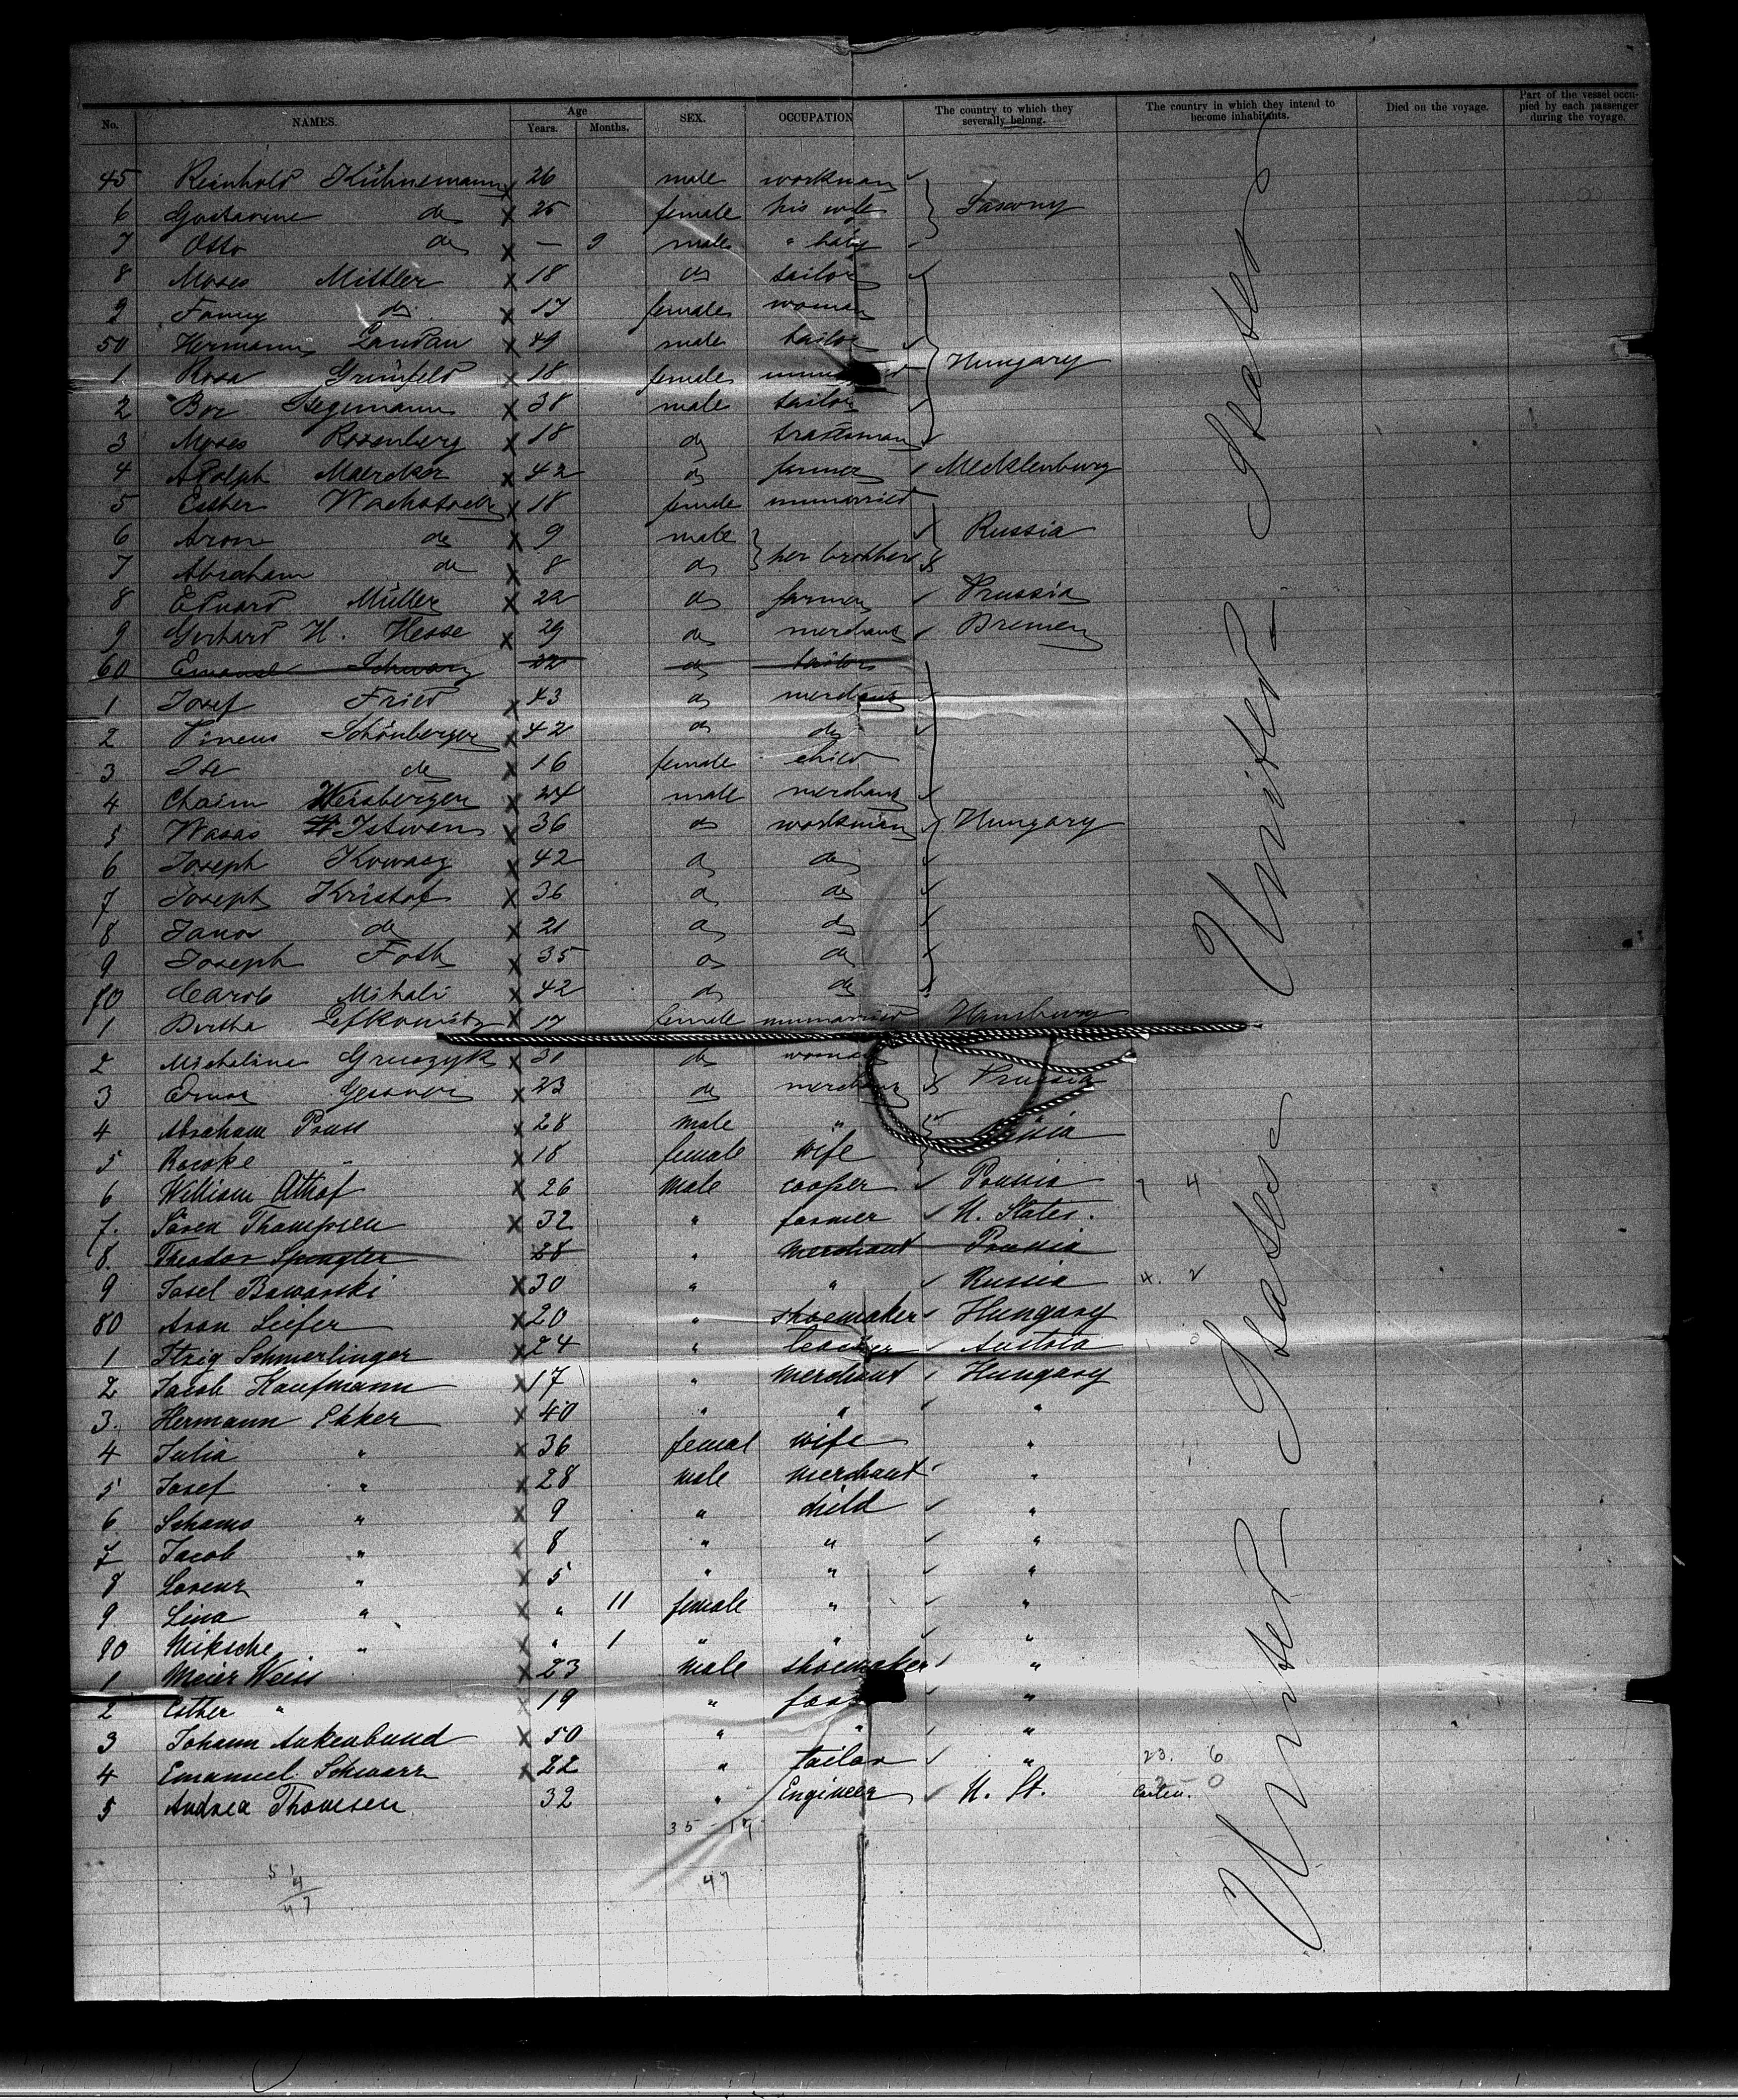 No. NAMES. Age Years. Months. SEX. OCCUPATION The country to which they severally belong. The country in which they intend to become inhabitants. Died on the voyage. Part of the vessel occupied by each passenger during the voyage.
45 Reinhold Kühnemann x 26 male workman ✓
6 Gustavine do x 25 female his wife } Saxony
7 Otto do x — 9 male " baby
8 Moses Mittler x 18 do tailor ✓
9 Fanny do x 17 female woman
50 Hermann Landau x 49 male tailor ✓
1 Rosa Grünfeld x 18 female } Hungary
2 Ber Stegemann x 38 male tailor ✓
3 Moses Rosenberg x 18 do tradesman ✓
4 Adolph Maercker x 42 do farmer ✓ Mecklenburg
5 Esther x 18 female unmarried
6 Aron do x 9 male ✓ } Russia
7 Abraham do x 8 do } her brother
8 Eduard Müller x 22 do farmer ✓ Prussia
9 Gerhard H. Hesse x 29 do merchant ✓ Bremen
60 Emanuel Schwarz 22 do tailor
1 Josef Fried x 43 do merchant ✓
2 Pincus Schönberger x 42 do do ✓
3 do x 16 female child
4 Chaim Weisberger x 24 male merchant ✓
5 Istwan x 36 do workman ✓ } Hungary
6 Joseph x 42 do do ✓
7 Joseph Kristof x 36 do do ✓
8 Janos do x 21 do do ✓
9 Joseph Foth x 35 do do ✓
70 Mihali x 42 do do
1 Bertha Lefkowitz x 17 female unmarried Hamburg
2 Micheline x do woman
3 x 23 do merchant Prussia
4 Abraham Pruss x 28 male "
5 x 18 female wife
6 William Althof x 26 male cooper ✓ Prussia 4
7. Sören Thompsen x 32 " farmer ✓ U. States.
8. Theodor Spengler 28 " merchant Prussia
9 x 30 " " ✓ Russia 4. 2
80 Aron Leifer x 20 " shoemaker ✓ Hungary
1 Itzig Schmerlinger x 24 " ✓ Austria
2 Jacob Kaufmann x 17 " merchant ✓ Hungary
3. Hermann Ekker x 40 " " ✓ "
4 Julia " x 36 femal wife "
5 Josef " x 28 male merchant "
6 " x 9 " child ✓ "
7 Jacob " x 8 " " ✓ "
8 Lorenz " x 5 " " ✓ "
9 Lina " x " 11 female " ✓ "
90 " x " 1 " " ✓ "
1 Meier Weiss x 23 male shoemaker ✓ "
2 Esther " x 19 " ✓ "
3 Johann Ankenbund x 50 " " ✓ "
4 Emanuel Schwarz x 22 " tailor ✓ " 23. 6
5 Andrea Thomsen 32 " Engineer ✓ U. St.
35 - 19
47
United States
United States